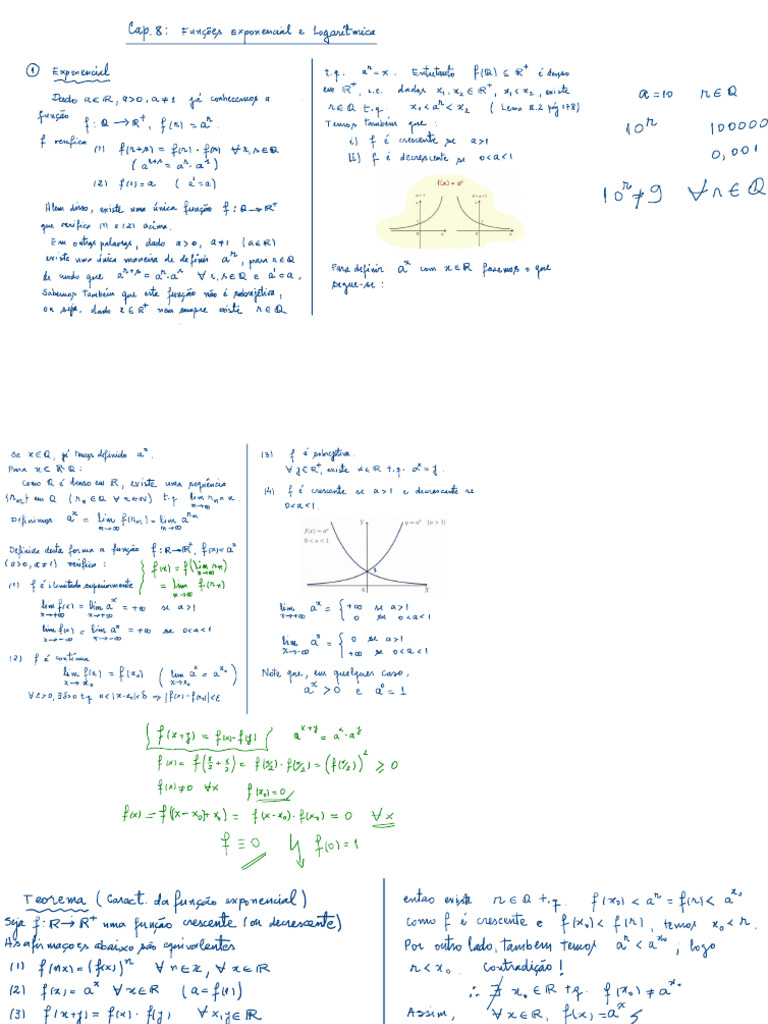 Cap. 8: Funções Exponencial e Logarítmica
① Exponencial
Dado a∈R, a>0, a≠1 já conhecemos a
função f: Q → R⁺, f(r) = aʳ.
f verifica (1) f(r+s) = f(r)·f(s) ∀r,s∈Q
(aʳ⁺ˢ = aʳ·aˢ)
(2) f(1) = a (a¹=a)
Além disso, existe uma única função f: Q→R⁺
que verifica (1) e (2) acima.
Em outras palavras, dado a>0, a≠1 (a∈R)
existe uma única maneira de definir aʳ, para r∈Q
de modo que aʳ⁺ˢ = aʳ·aˢ ∀ r,s∈Q e a¹=a.
Sabemos também que esta função não é sobrejetiva,
ou seja, dado x∈R⁺ nem sempre existe r∈Q
t.q. aʳ = x. Entretanto f(Q) ⊆ R⁺ é denso
em R⁺, i.e. dados x₁, x₂ ∈ R⁺, x₁ < x₂, existe
r∈Q t.q. x₁ < aʳ < x₂ (Lema 8.2 pág 178)
Temos também que:
i) f é crescente se a>1
ii) f é decrescente se 0<a<1
f(x) = aˣ
a>1
0<a<1
Para definir aˣ com x∈R fazemos o que
segue-se:
a=10 r∈Q
10ʳ 100000
0,001
10ʳ ≠ 9 ∀r∈Q
Se x∈Q, já temos definido aˣ.
Para x∈R\Q:
Como Q é denso em R, existe uma sequência
(rₙ) em Q (rₙ∈Q ∀n∈N) t.q. lim rₙ = x.
n→∞
Definimos aˣ = lim f(rₙ) = lim aʳⁿ
n→∞ n→∞
Definida desta forma a função f: R→R⁺, f(x) = aˣ
(a>0, a≠1) verifica:
f(x) = f(lim rₙ)
n→∞
= lim f(rₙ)
n→∞
(1) f é ilimitada superiormente
lim f(x) = lim aˣ = +∞ se a>1
x→+∞ x→+∞
lim f(x) = lim aˣ = +∞ se 0<a<1
x→-∞ x→-∞
(2) f é contínua
lim f(x) = f(x₀) (lim aˣ = aˣ⁰)
x→x₀ x→x₀
∀ε>0, ∃δ>0 t.q. 0<|x-x₀|<δ ⇒ |f(x)-f(x₀)|<ε
(3) f é sobrejetiva.
∀y∈R⁺, existe x∈R t.q. aˣ = y.
(4) f é crescente se a>1 e decrescente se
0<a<1.
f(x) = aˣ
0 < a < 1
y
y = aˣ (a > 1)
0
x
lim aˣ = { +∞ se a>1
x→+∞ 0 se 0<a<1
lim aˣ = { 0 se a>1
x→-∞ +∞ se 0<a<1
Note que, em qualquer caso,
aˣ > 0 e a⁰ = 1
f(x+y) = f(x)·f(y) aˣ⁺ʸ = aˣ·aʸ
f(x) = f(x/2 + x/2) = f(x/2)·f(x/2) = (f(x/2))² ≥ 0
f(x) ≠ 0 ∀x f(x₀) = 0
f(x) = f((x-x₀)+x₀) = f(x-x₀)·f(x₀) = 0 ∀x
f ≡ 0 f(0) = 1
Teorema (Caract. da função exponencial)
Seja f: R→R⁺ uma função crescente (ou decrescente)
As afirmações abaixo são equivalentes
(1) f(nx) = (f(x))ⁿ ∀n∈Z, ∀x∈R
(2) f(x) = aˣ ∀x∈R (a = f(1))
(3) f(x+y) = f(x)·f(y) ∀x,y∈R
então existe r∈Q t.q. f(x₀) < aʳ = f(r) < aˣ⁰
Como f é crescente e f(x₀) < f(r), temos x₀ < r.
Por outro lado, também temos aʳ < aˣ⁰, logo
r < x₀. Contradição!
∴ ∄ x₀∈R t.q. f(x₀) ≠ aˣ⁰
Assim, ∀x∈R, f(x) = aˣ